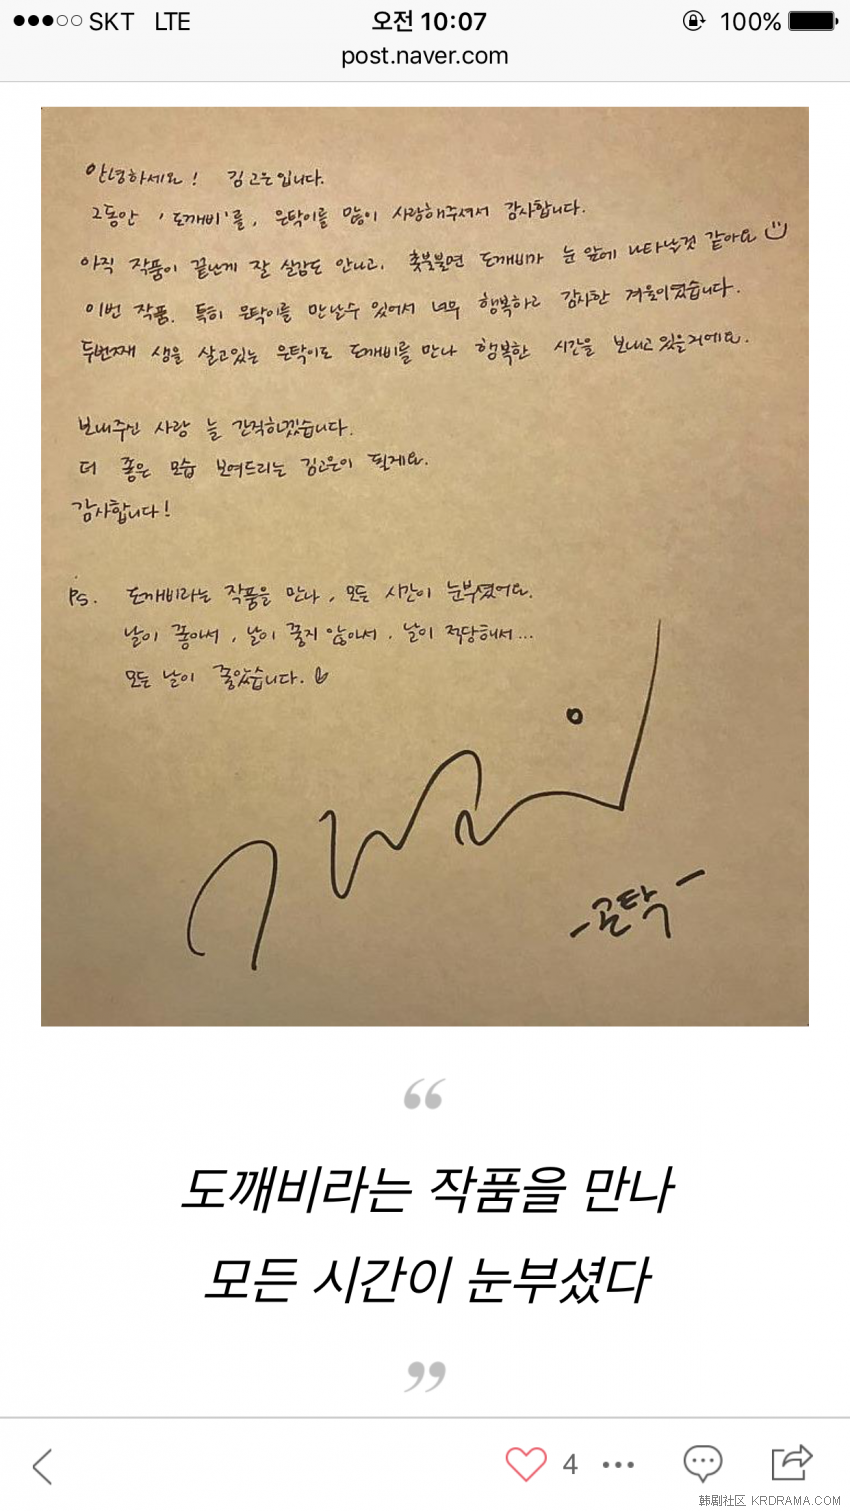 SKT LTE 오전 10:07 100%
post.naver.com
안녕하세요! 김고은입니다.
그동안 '도깨비'를, 은탁이를 많이 사랑해주셔서 감사합니다.
아직 작품이 끝난게 잘 실감도 안나고, 촛불불면 도깨비가 눈 앞에 나타날것 같아요
이번 작품. 특히 은탁이를 만날수 있어서 너무 행복하고 감사한 겨울이였습니다.
두번째 생을 살고있는 은탁이도 도깨비를 만나 행복한 시간을 보내고 있을거에요.
보내주신 사랑 늘 간직하겠습니다.
더 좋은 모습 보여드리는 김고은이 될게요.
감사합니다!
Ps. 도깨비라는 작품을 만나, 모든 시간이 눈부셨어요.
날이 좋아서, 날이 좋지 않아서, 날이 적당해서...
모든 날이 좋았습니다.
-곧탁-
“
도깨비라는 작품을 만나
모든 시간이 눈부셨다
”
4
韩剧社区 KRDRAMA.COM